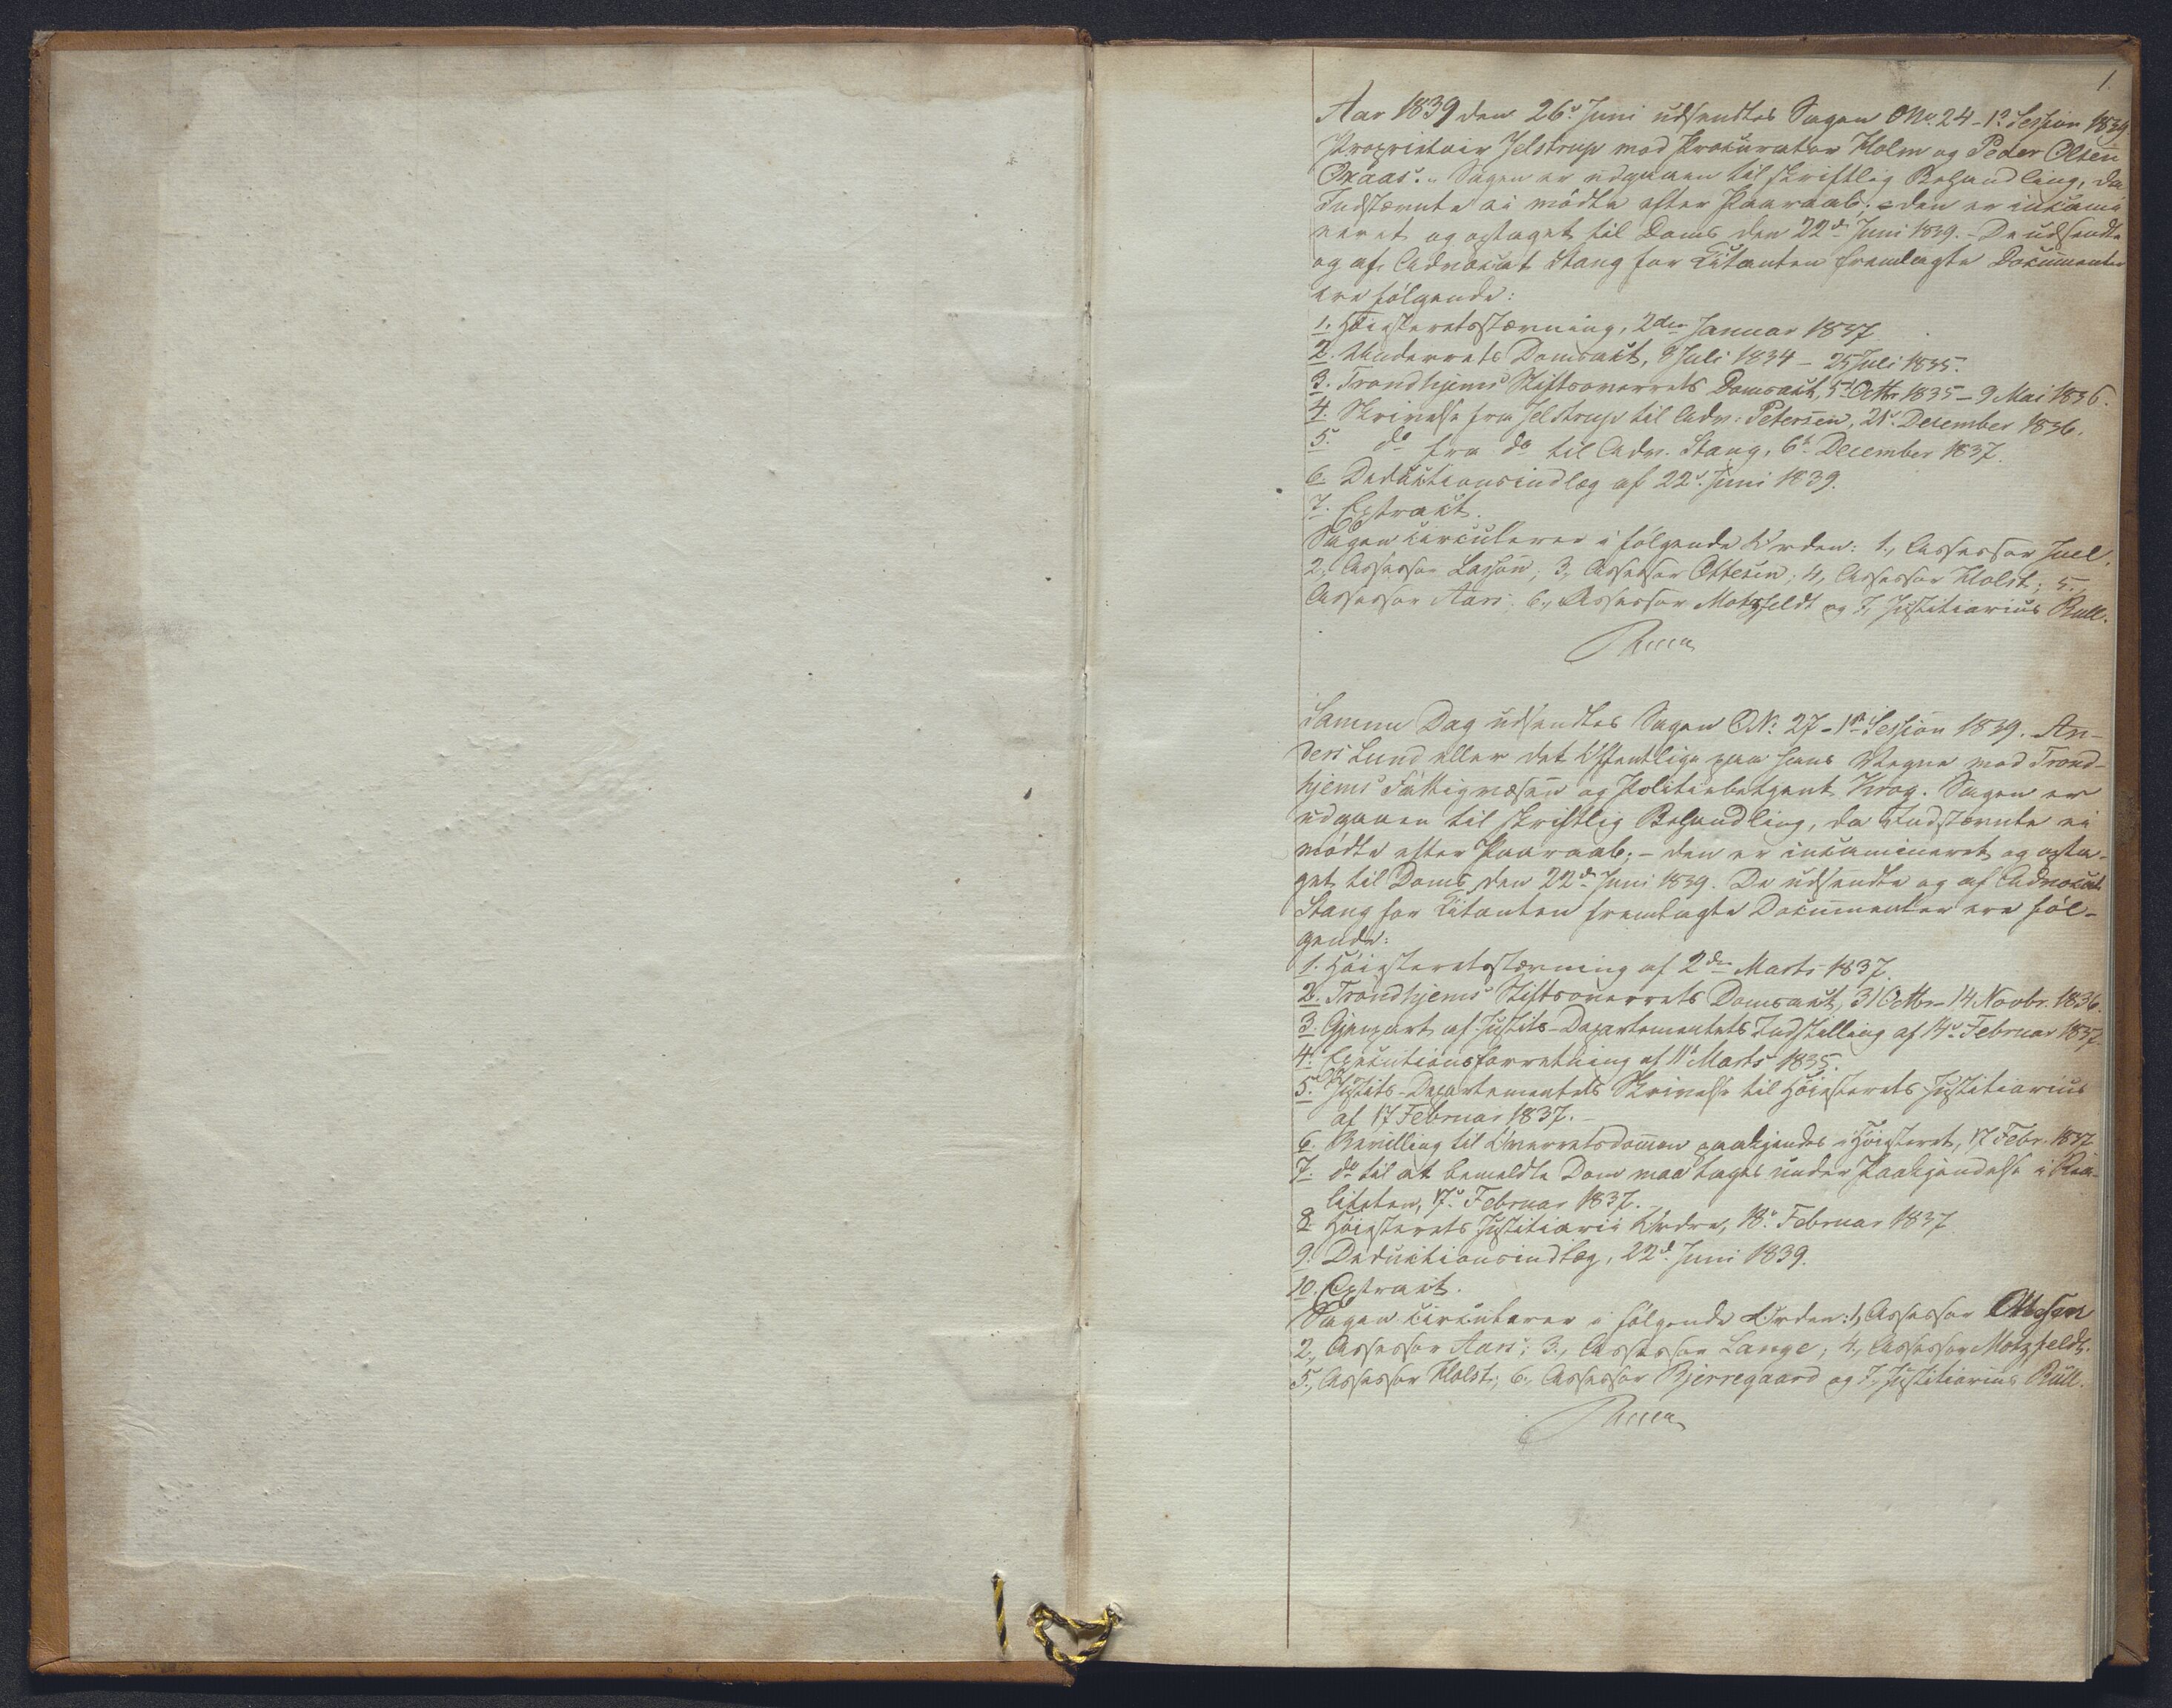 1.
Aar 1839 den 26de Juni udsendtes Sagen No. 24 - 1ste Session 1839
Proprietair Jelstrup mod Procurator Holm og Peder Olsen
Oxaas. Sagen er udgaaen til skriftlig Behandling, da
Indstævnte ei mødte efter Paaraab; - den er incami-
neret og optaget til Doms den 22de Juni 1839. - De udsendte
og af Advocat Stang for Citanten fremlagte Documenter
ere følgende:
1. Høiesteretsstævning, 2den Januar 1837
2. Underrets Domsact, 9 Juli 1834 - 25 Juli 1835.
3. Trondhjems Stiftsoverrets Domsact, 5te Octbr 1835 - 9 Mai 1836.
4. Skrivelse fra Jelstrup til Adv: Petersen, 21de December 1836.
5. do fra do til Adv. Stang, 6te December 1837.
6. Deductionsindlæg af 22de Juni 1839.
7. Extract.
Sagen circulerer i følgende Orden: 1, Assessor Juel.
2, Assessor Lasson; 3, Assessor Ottesen; 4, Assessor Holst; 5,
Assessor Aars; 6, Assessor Motzfeldt og 7, Justitiarius Bull.
Samme Dag udsendtes Sagen No. 27 - 1ste Session 1839. An-
ders Lund eller det Offentlige paa hans Vegne mod Trond-
hjems Fattigvæsen og Politiebetjent Krog. Sagen er
udgaaen til skriftlig Behandling, da Indstævnte ei
mødte efter Paaraab; - den er incamineret og opta-
get til Doms den 22de Juni 1839. De udsendte og af Advocat
Stang for Citanten fremlagte Documenter ere føl-
gende:
1. Høiesteretsstævning af 2den Marts 1837.
2. Trondhjems Stiftsoverrets Domsact, 31 Octbr - 14 Novbr. 1836.
3. Gjenpart af Justits-Departementets Indstilling af 14de Februar 1837.
4. Executionsforretning af 11te Marts 1835.
5. Justits-Departementets Skrivelse til Høiesterets Justitiarius
af 17 Februar 1837.
6. Bevilling til Overretsdommen paakjendes i Høiesteret, 17 Febr. 1837
7. do til at bemeldte Dom maa tages under Paakjendelse i Rea-
liteten, 17de Februar 1837.
8. Høiesterets Justitiarii Ordre, 18de Februar 1837
9. Deductionsindlæg, 22de Juni 1839.
10. Extract.
Sagen circulerer i følgende Orden: 1, Assessor Ottesen
2, Assessor Aars; 3, Assessor Lange; 4, Assessor Motzfeldt.
5, Assessor Holst; 6, Assessor Bjerregaard og 7, Justitiarius Bull.